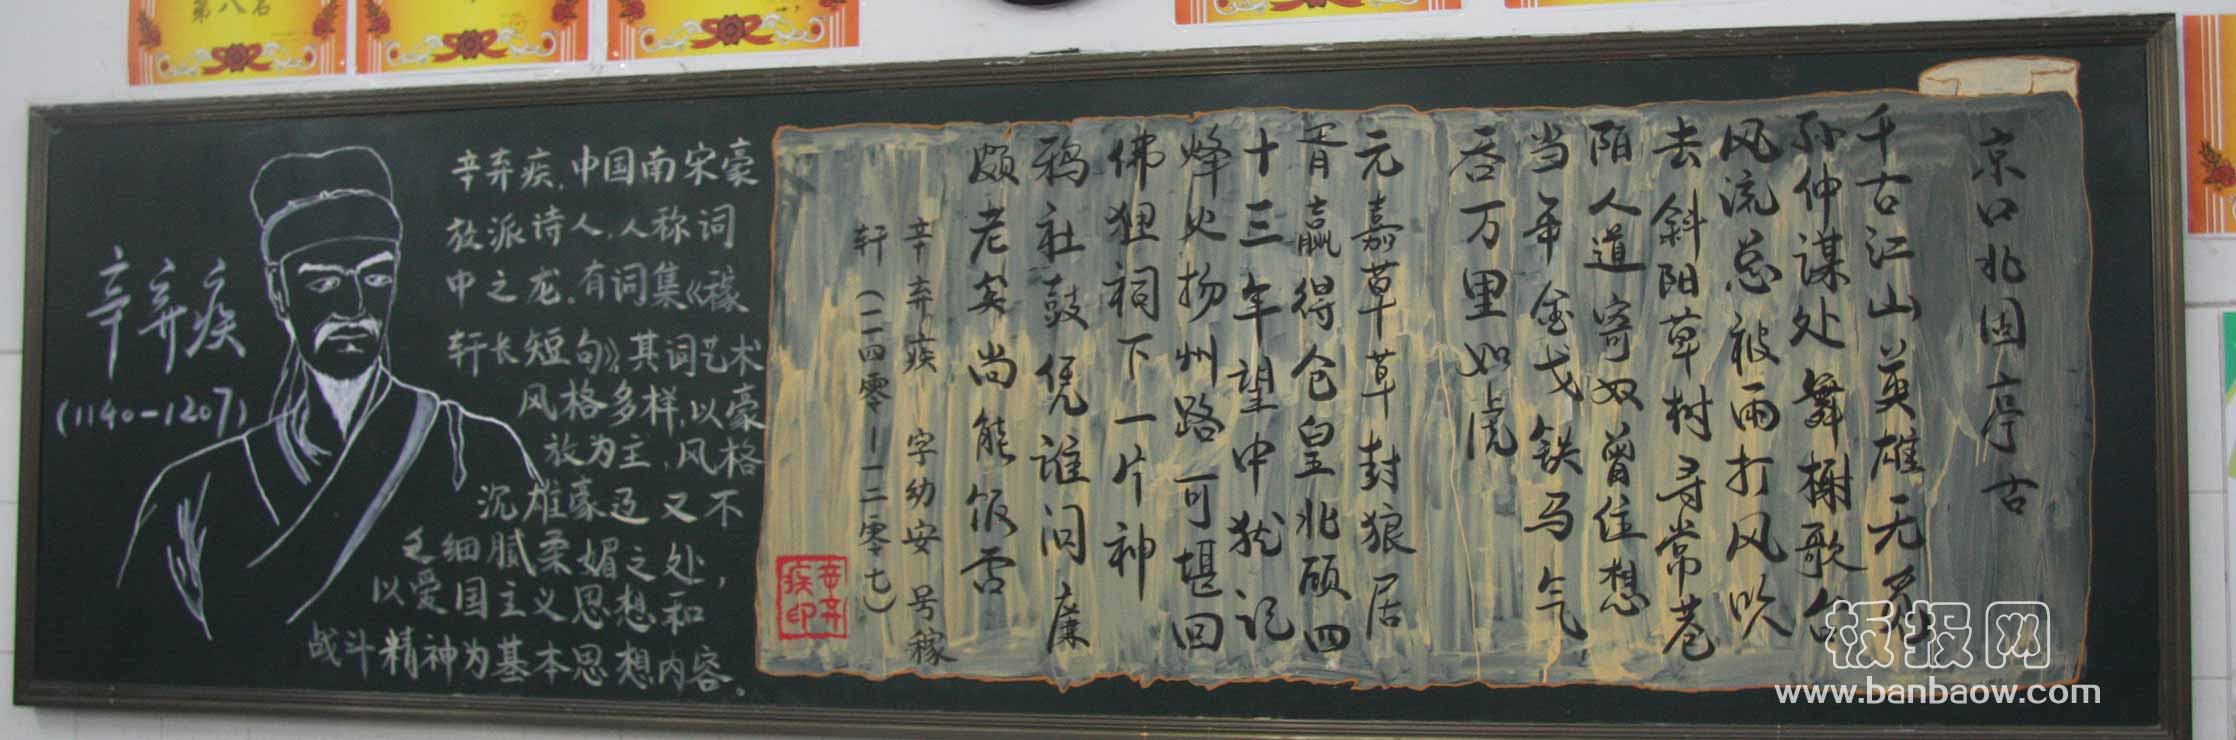 第八名
辛弃疾
(1140-1207)
辛弃疾,中国南宋豪
放派诗人,人称词
中之龙,有词集《稼
轩长短句》其词艺术
风格多样,以豪
放为主,风格
沉雄豪迈又不
乏细腻柔媚之处,
以爱国主义思想和
战斗精神为基本思想内容。
京口北固亭古
千古江山英雄无觅
孙仲谋处舞榭歌台
风流总被雨打风吹
去斜阳草树寻常巷
陌人道寄奴曾住想
当年金戈铁马气
吞万里如虎
元嘉草草封狼居
胥赢得仓皇北顾四
十三年望中犹记
烽火扬州路可堪回
佛狸祠下一片神
鸦社鼓凭谁问廉
颇老矣尚能饭否
辛弃疾 字幼安 号稼
轩(一一四零-一二零七)
辛弃
疾印
板报网
www.banbaow.com